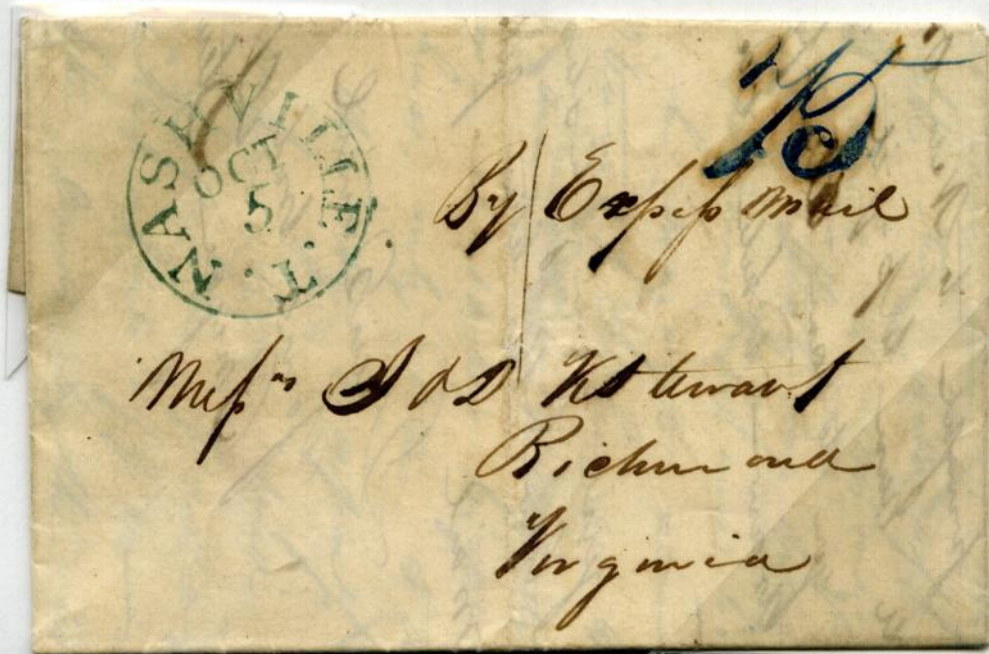 NASHVILLE. T.
OCT
5
By Express Mail
Mess rs & D
Richmond
Virginia